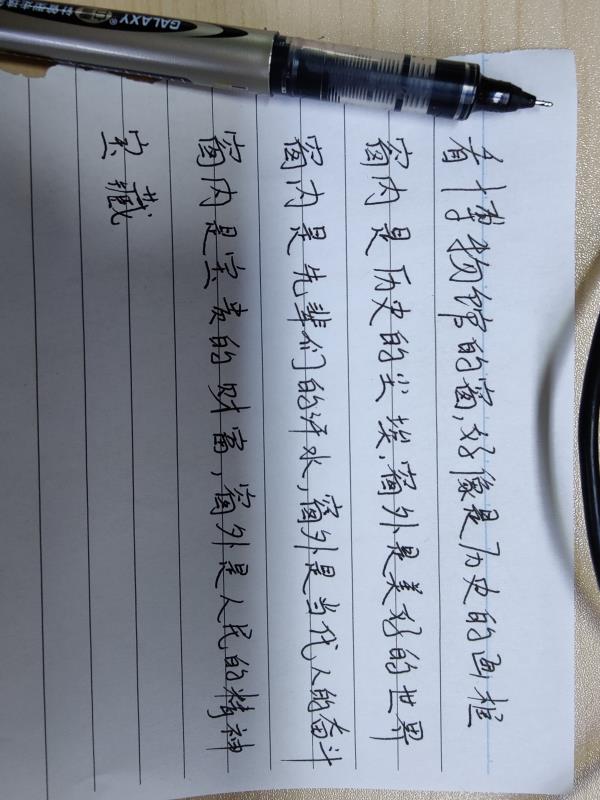 看博物馆的窗,好像是历史的画框
窗内是历史的尘埃,窗外是美好的世界
窗内是先辈们的汗水,窗外是当代人的奋斗
窗内是宝贵的财富,窗外是人民的精神
宝藏
GALAXY